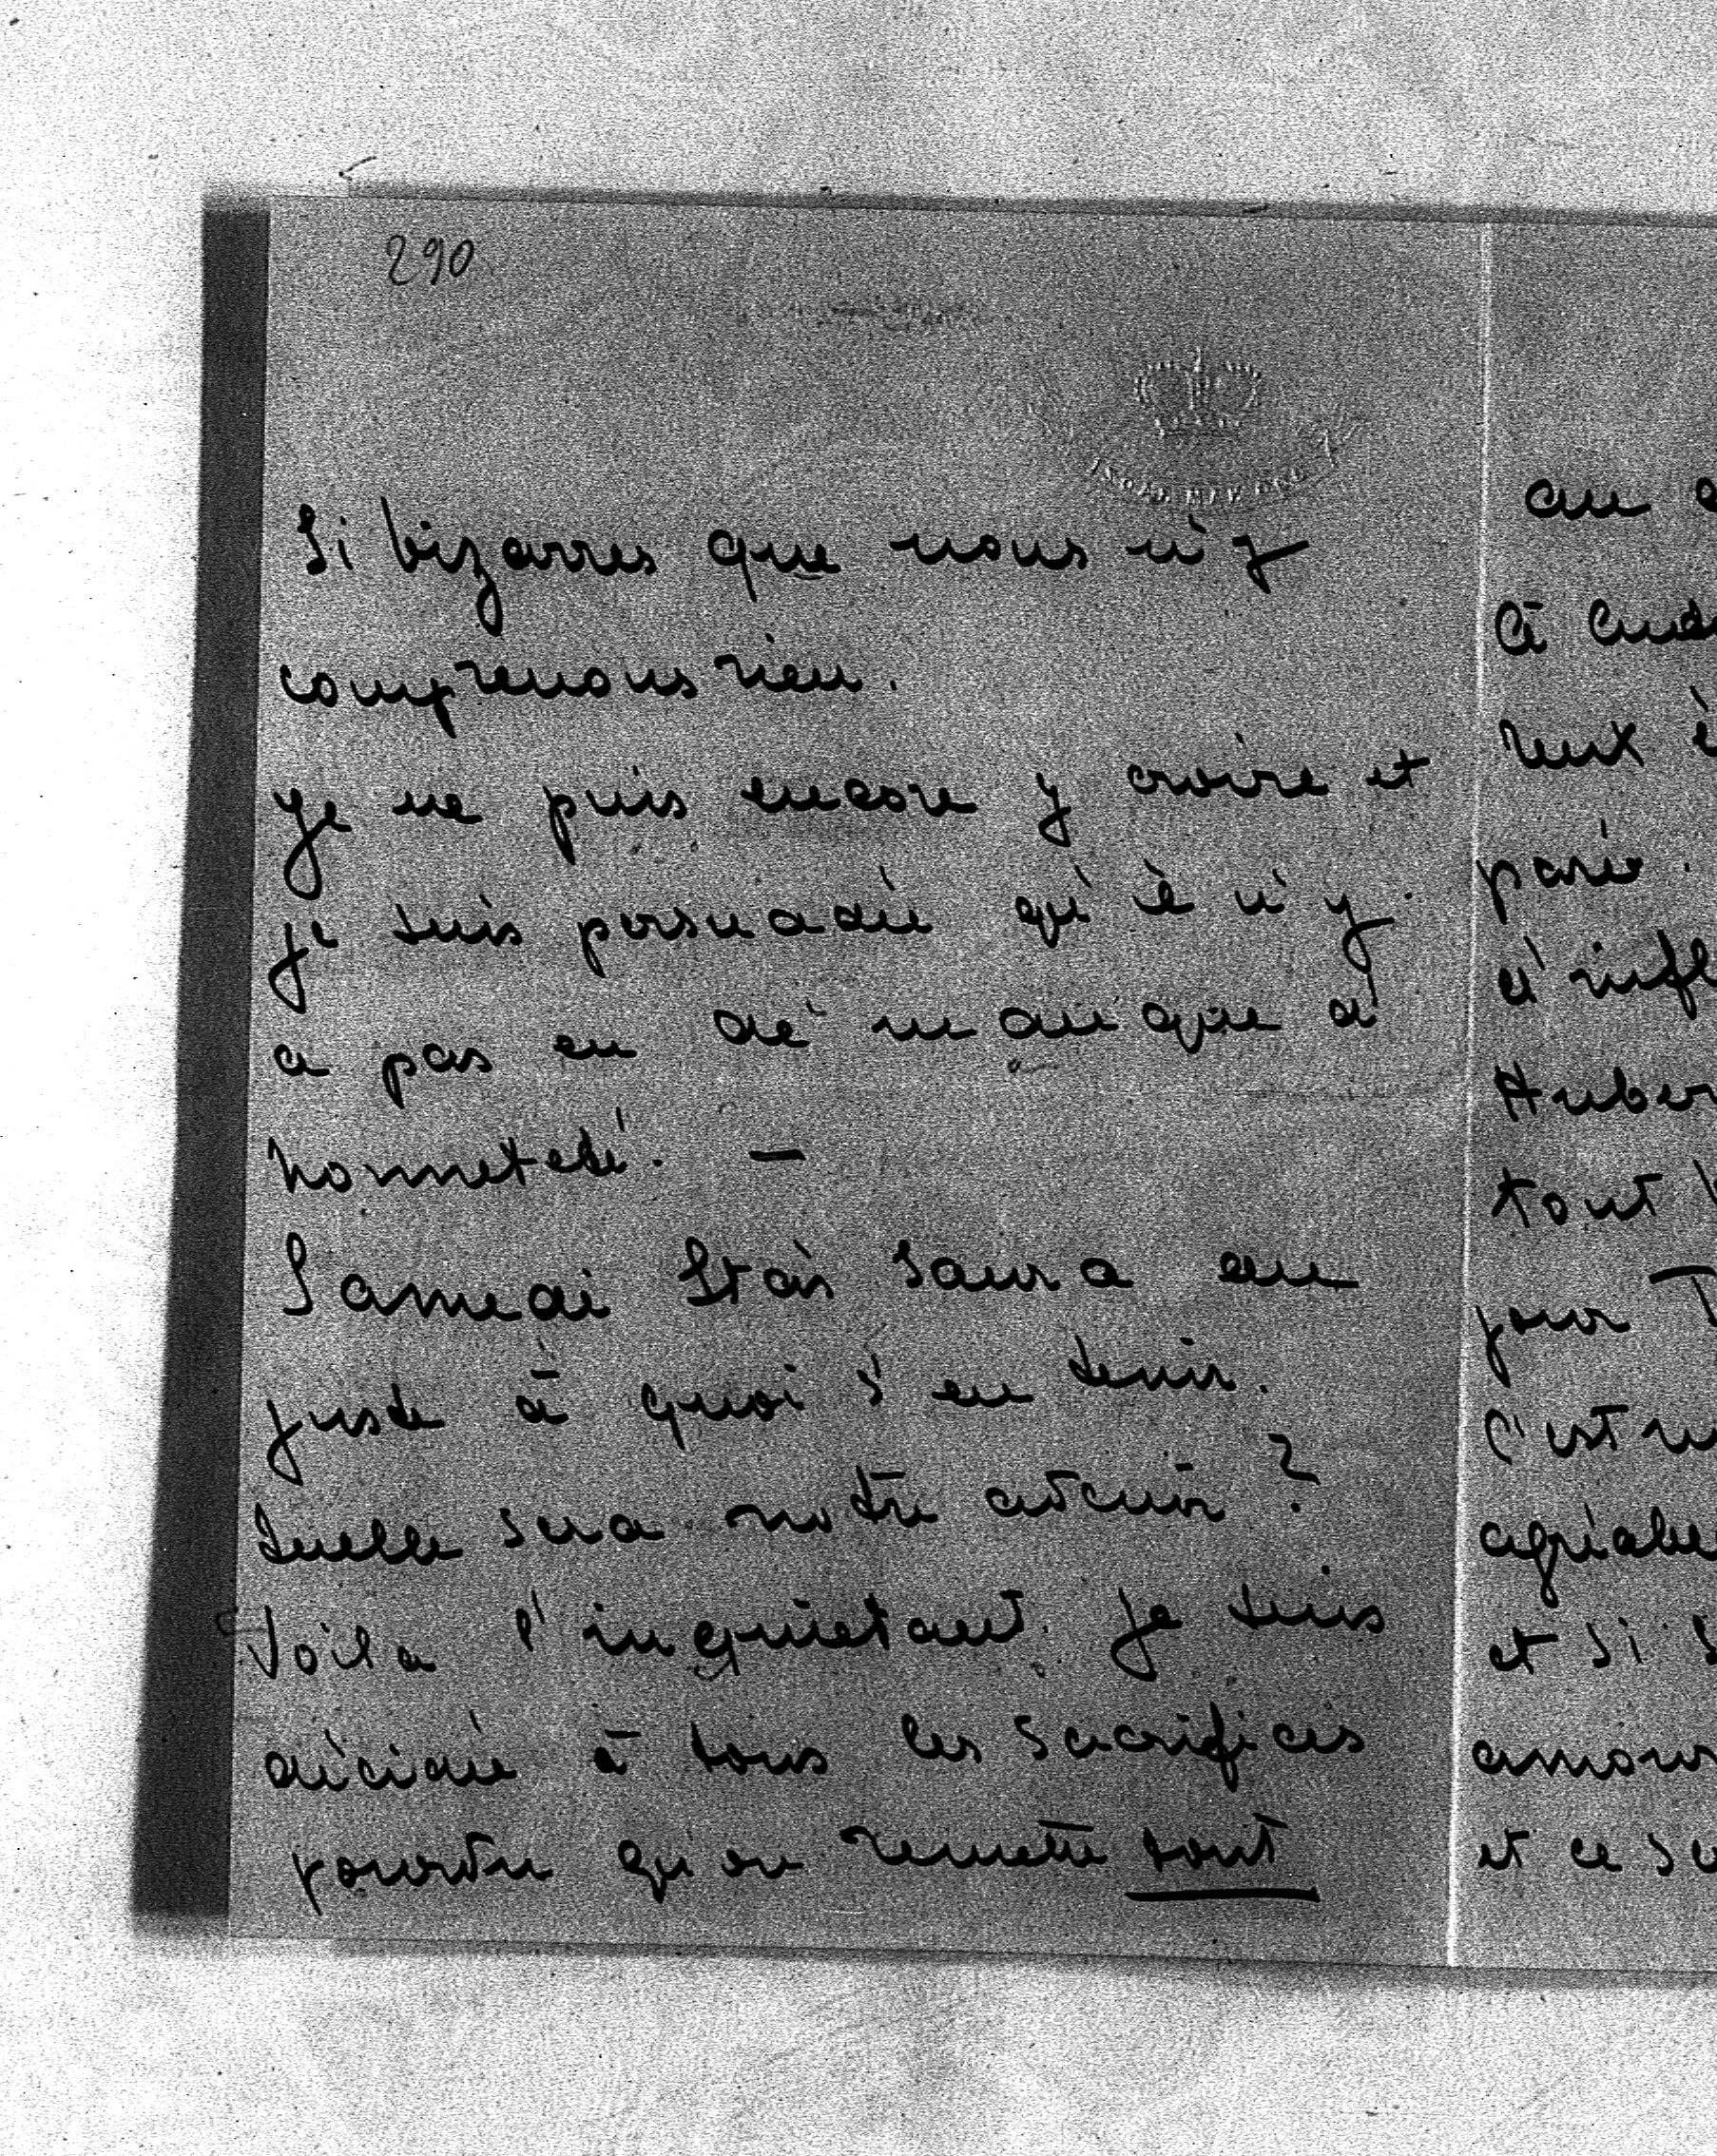 290
Si bizarres que nous n'y
comprenons rien.
Je ne puis encore y croire et
je suis persuadée qu'il n'y
a pas eu de manque d'
honneteté. —
Samedi Stas saura au
juste à quoi s'en tenir.
Quelle sera notre avenir ?
Voila l'inquiétant. Je suis
décidée à tous les sacrifices
pourvu qu'on remette tout
au
à
reux
parér.
d'infl
Huber
tout
pour
C'est
agréable
et si
amour
et ce